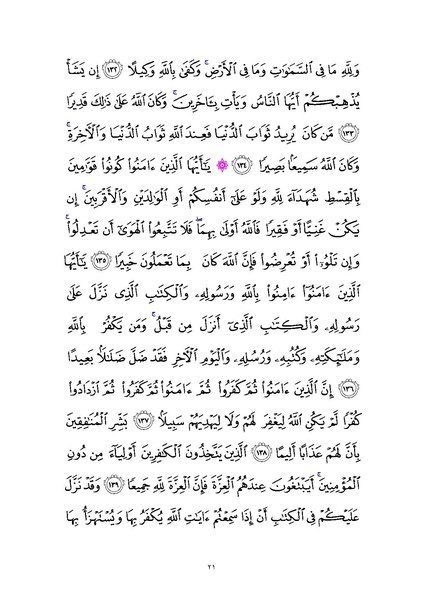 وَلِلَّهِ مَا فِي ٱلسَّمَٰوَٰتِ وَمَا فِي ٱلۡأَرۡضِۚ وَكَفَىٰ بِٱللَّهِ وَكِيلًا ١٣٢ إِن يَشَأۡ
يُذۡهِبۡكُمۡ أَيُّهَا ٱلنَّاسُ وَيَأۡتِ بِـَٔاخَرِينَۚ وَكَانَ ٱللَّهُ عَلَىٰ ذَٰلِكَ قَدِيرٗا
١٣٣ مَّن كَانَ يُرِيدُ ثَوَابَ ٱلدُّنۡيَا فَعِندَ ٱللَّهِ ثَوَابُ ٱلدُّنۡيَا وَٱلۡأٓخِرَةِۚ
وَكَانَ ٱللَّهُ سَمِيعَۢا بَصِيرٗا ١٣٤ ۞ يَٰٓأَيُّهَا ٱلَّذِينَ ءَامَنُواْ كُونُواْ قَوَّٰمِينَ
بِٱلۡقِسۡطِ شُهَدَآءَ لِلَّهِ وَلَوۡ عَلَىٰٓ أَنفُسِكُمۡ أَوِ ٱلۡوَٰلِدَيۡنِ وَٱلۡأَقۡرَبِينَۚ إِن
يَكُنۡ غَنِيًّا أَوۡ فَقِيرٗا فَٱللَّهُ أَوۡلَىٰ بِهِمَاۖ فَلَا تَتَّبِعُواْ ٱلۡهَوَىٰٓ أَن تَعۡدِلُواْۚ
وَإِن تَلۡوُۥٓاْ أَوۡ تُعۡرِضُواْ فَإِنَّ ٱللَّهَ كَانَ بِمَا تَعۡمَلُونَ خَبِيرٗا ١٣٥ يَٰٓأَيُّهَا
ٱلَّذِينَ ءَامَنُوٓاْ ءَامِنُواْ بِٱللَّهِ وَرَسُولِهِۦ وَٱلۡكِتَٰبِ ٱلَّذِي نَزَّلَ عَلَىٰ
رَسُولِهِۦ وَٱلۡكِتَٰبِ ٱلَّذِيٓ أَنزَلَ مِن قَبۡلُۚ وَمَن يَكۡفُرۡ بِٱللَّهِ
وَمَلَٰٓئِكَتِهِۦ وَكُتُبِهِۦ وَرُسُلِهِۦ وَٱلۡيَوۡمِ ٱلۡأٓخِرِ فَقَدۡ ضَلَّ ضَلَٰلَۢا بَعِيدًا
١٣٦ إِنَّ ٱلَّذِينَ ءَامَنُواْ ثُمَّ كَفَرُواْ ثُمَّ ءَامَنُواْ ثُمَّ كَفَرُواْ ثُمَّ ٱزۡدَادُواْ
كُفۡرٗا لَّمۡ يَكُنِ ٱللَّهُ لِيَغۡفِرَ لَهُمۡ وَلَا لِيَهۡدِيَهُمۡ سَبِيلَۢا ١٣٧ بَشِّرِ ٱلۡمُنَٰفِقِينَ
بِأَنَّ لَهُمۡ عَذَابًا أَلِيمًا ١٣٨ ٱلَّذِينَ يَتَّخِذُونَ ٱلۡكَٰفِرِينَ أَوۡلِيَآءَ مِن دُونِ
ٱلۡمُؤۡمِنِينَۚ أَيَبۡتَغُونَ عِندَهُمُ ٱلۡعِزَّةَ فَإِنَّ ٱلۡعِزَّةَ لِلَّهِ جَمِيعٗا ١٣٩ وَقَدۡ نَزَّلَ
عَلَيۡكُمۡ فِي ٱلۡكِتَٰبِ أَنۡ إِذَا سَمِعۡتُمۡ ءَايَٰتِ ٱللَّهِ يُكۡفَرُ بِهَا وَيُسۡتَهۡزَأُ بِهَا
٢١